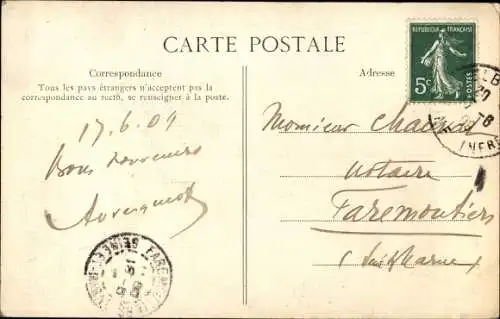 CARTE POSTALE
Correspondance
Tous les pays étrangers n'acceptent pas la
correspondance au recto, se renseigner à la poste.
Adresse
REPUBLIQUE FRANÇAISE
5c
POSTES
17.6.09
Bons souvenirs
Monsieur
Notaire
Faremoutiers
(Seine & Marne)
SEINE-ET-MARNE
INFRE